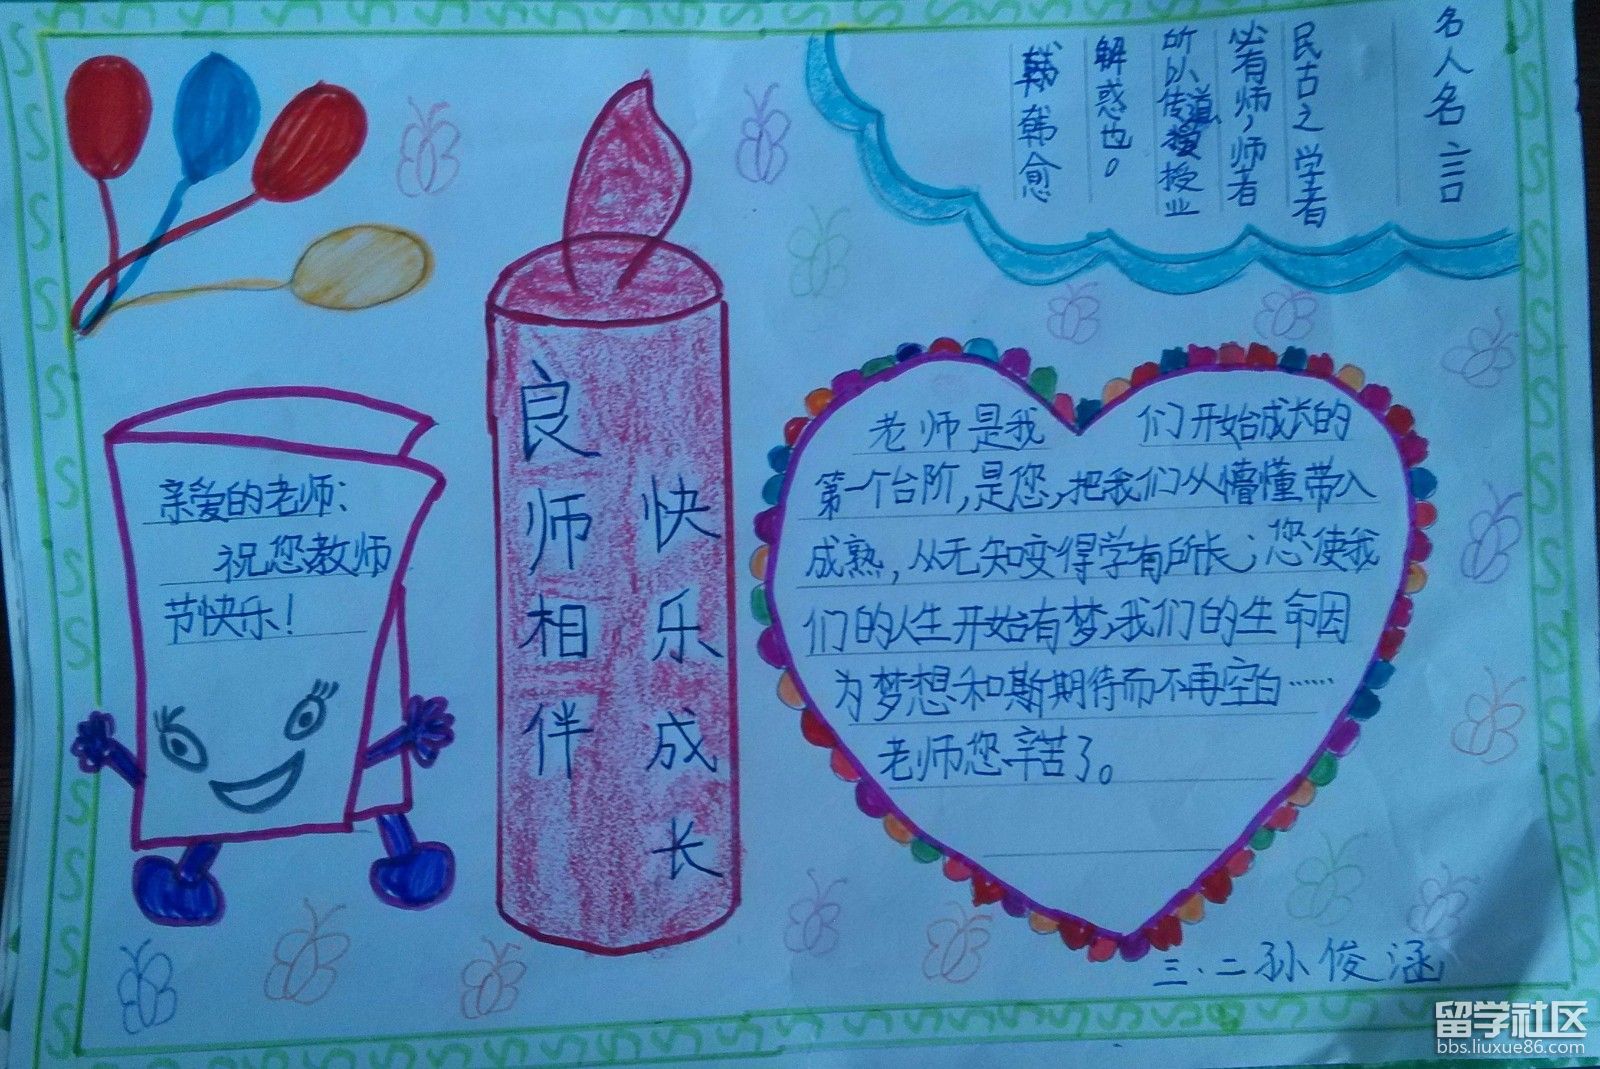 名人名言
民古之学者
必有师,师者
所以传道授业
解惑也。
韩愈
亲爱的老师:
祝您教师
节快乐!
良师相伴
快乐成长
老师是我们开始成长的
第一个台阶,是您,把我们从懵懂带入
成熟,从无知变得学有所长;您使我
们的人生开始有梦,我们的生命因
为梦想和斯期待而不再空白……
老师您辛苦了。
三.二孙俊涵
留学社区
bbs.liuxue86.com